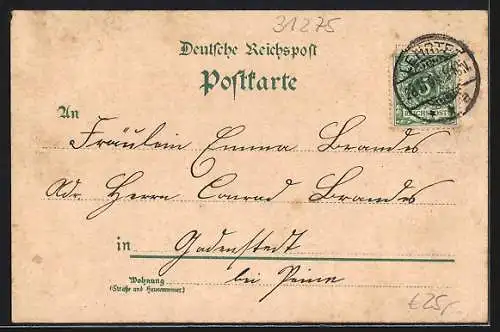 31275
Deutsche Reichspost
Postkarte
An
Fräulein Emma Brandes
Adr. Herrn Conrad Brandes
in Gadenstedt
Wohnung bei Peine
(Straße und Hausnummer)
LEHRTE
5
REICHSPOST
€25,-